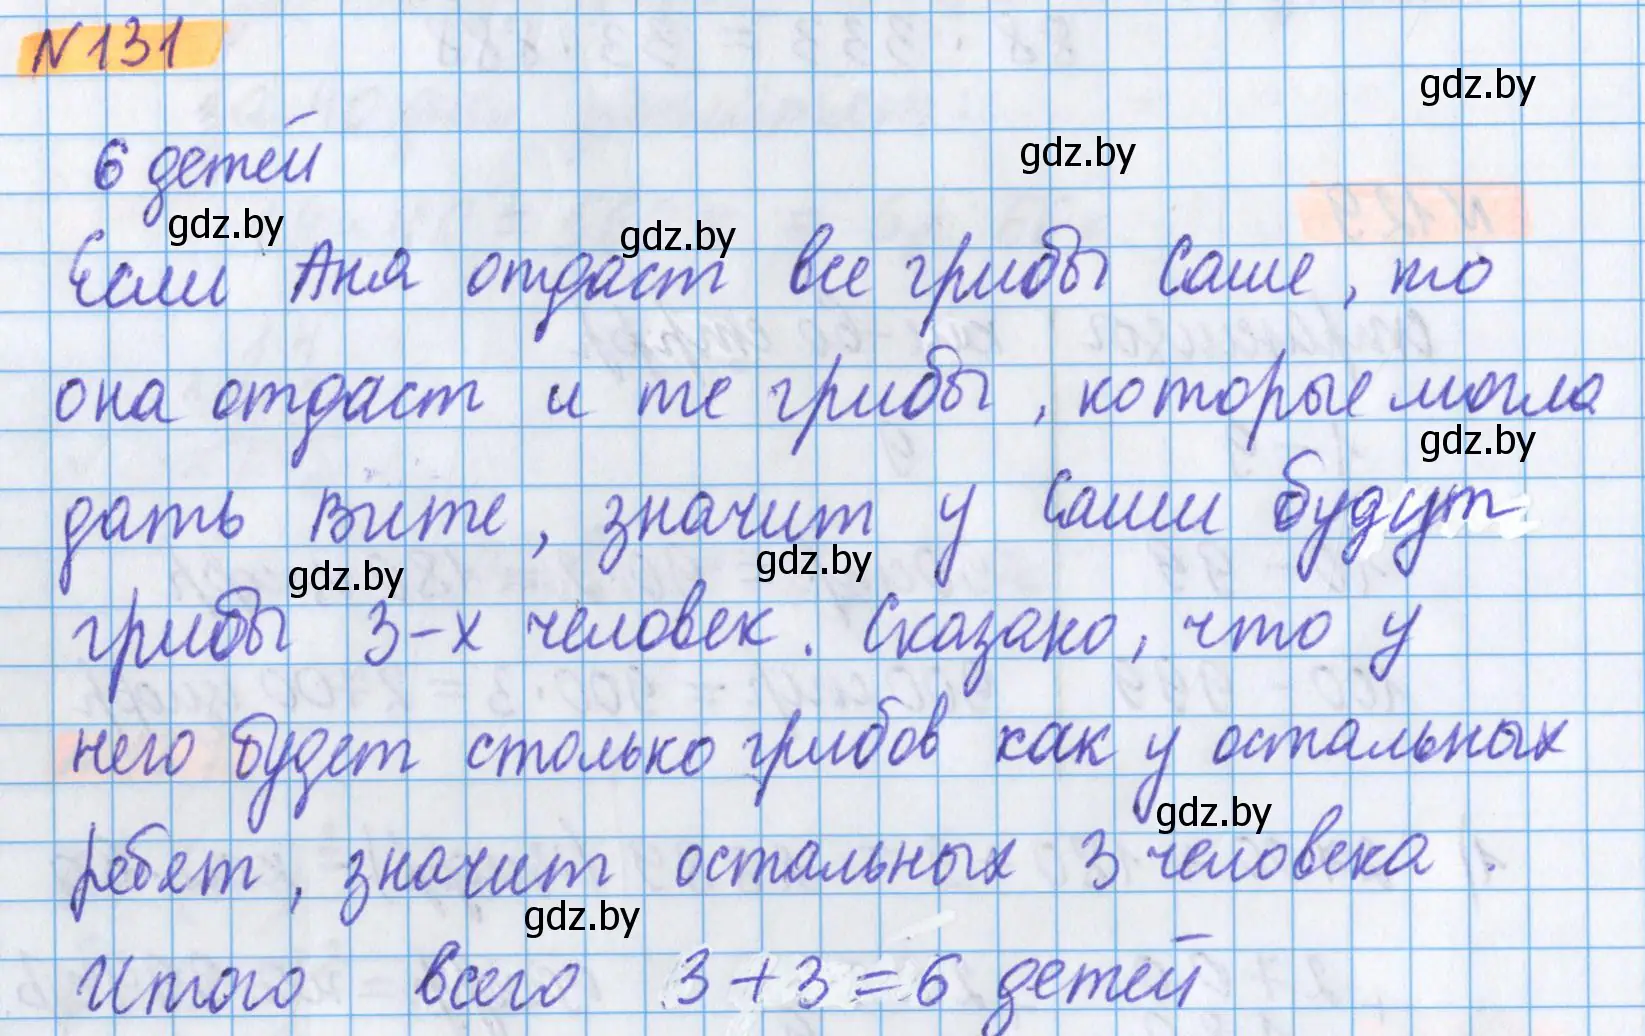 №131
gdz.by
6 детей
gdz.by
gdz.by
gdz.by
Если Аня отдаст все грибы Саше, то
она отдаст и те грибы, которые могла
gdz.by
дать Вите, значит у Саши будут
gdz.by
gdz.by
грибы 3-х человек. Сказано, что у
него будет столько грибов как у остальных
gdz.by
ребят, значит остальных 3 человека.
gdz.by
Итого всего 3+3=6 детей